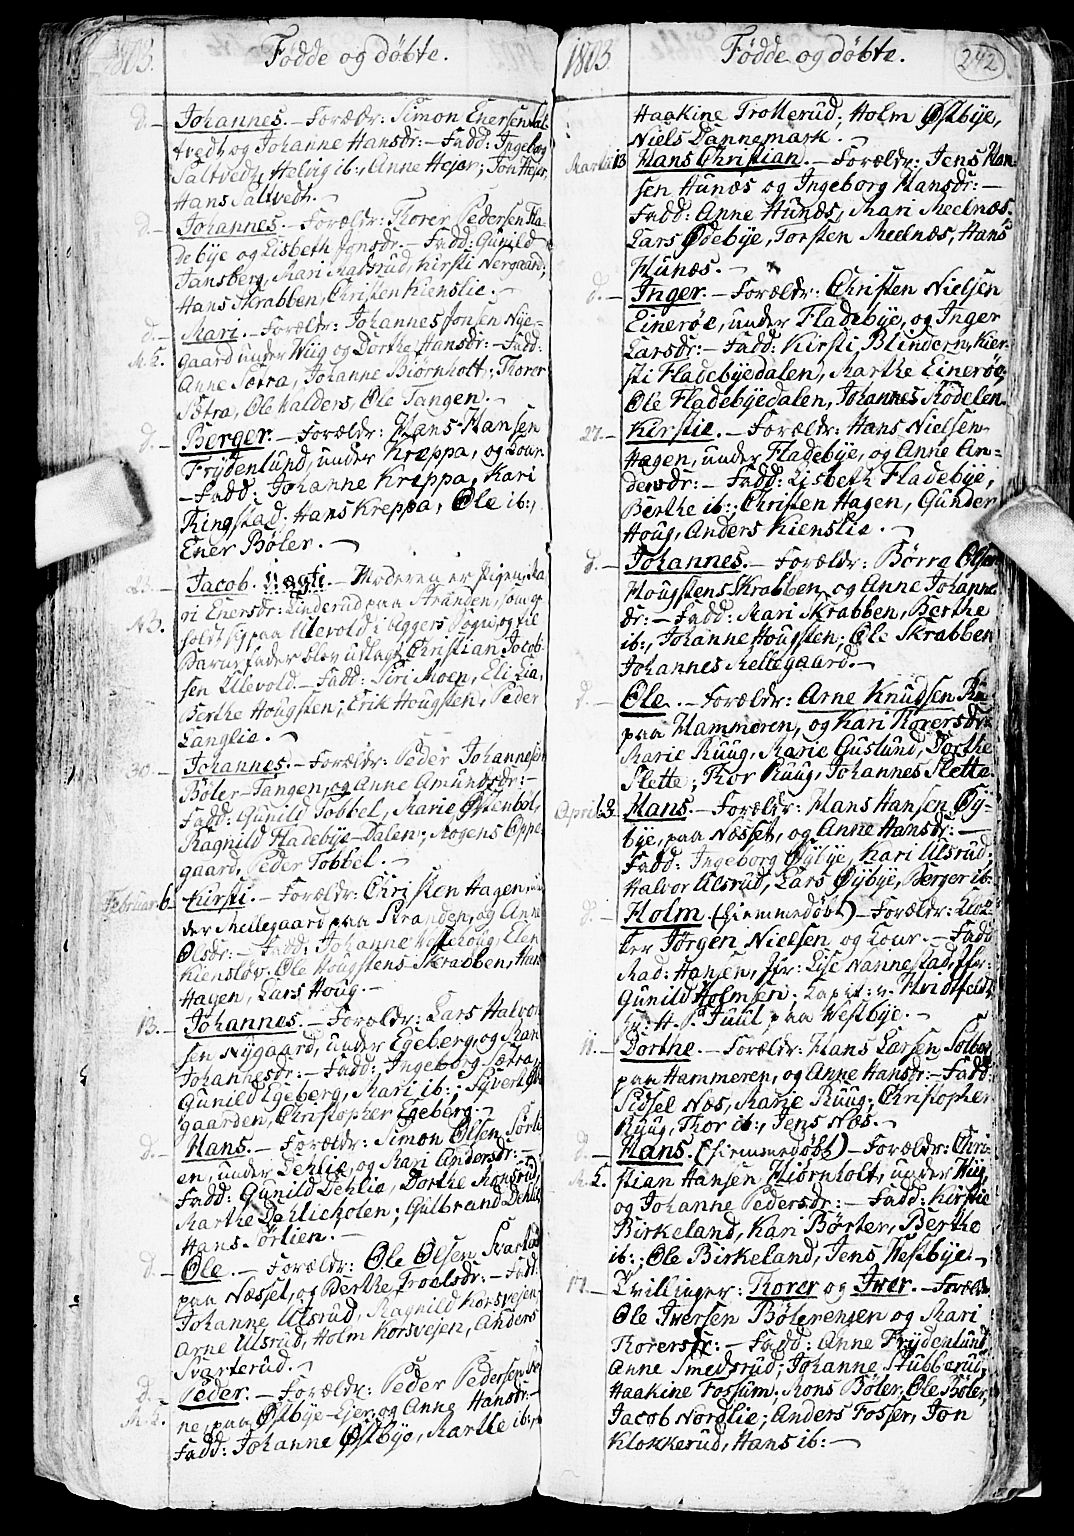 1803.
Fødde og døbte.
d. – Johannes. – Forældr: Simon Enersen Sal-
tvedt og Johanne Hansdr: – Fadd: Ingeborg
Saltvedt, Helvig ib:, Anne Hejer; Jon Hejer,
Hans Saltvedt. –
d. – Johannes. – Forældr: Thorer Pedersen Fla-
debÿe og Lisbeth Jonsdr. – Fadd: Gunild
Tansberg, Mari Madsrud, Kirsti Nergaard,
Hans Skrabben, Christen Kienslie. –
d. – Mari. – Forældr: Johannes Jonsen Nÿe-
gaard under Wiig og Dorthe Hansdr: – Fadd:
Anne Sætra, Johanne Biørnholt; Thorer
Sætra, Ole Valders, Ole Tangen. –
d. – Berger. – Forældr: Hans Hansen
Frÿdenlund, under Kræppa, og Lour.
– Fadd: Johanne Kreppa, Kari
Ringstad. Hans Kreppa, Ole ib:,
Ener Bøler. –
Jacob. uægte. – Moderen er Pigen
Enersdr: Linderud paa Stranden, som er
paa Ulevold i Aggers Sogn, og til
Barnefader blev udlagt Christian Jacob-
sen Ullevold. – Fadd: Siri Moen, Eli Lia,
Berthe Hougsten; Erik Hougsten, Peder
Langlie. –
30. – Johannes. – Forældr: Peder Johannesen
Bøler-Tangen, og Anne Amundsdr: –
Fadd: Gunild Tobbel, Marie Østenbøl,
Ragnild Fladebÿe-Dalen; Mogens Oppe-
gaard, Peder Tobbel. –
Februar 6. – Kirsti. – Forældr: Christen Hagen, un-
der Mellegaard paa Stranden, og Anne
Olsdr: – Fadd: Johanne Hougsten, Elen
Kiensløv. Ole Hougstens Skrabben, Hans
Hagen, Lars Houg. –
13. – Johannes. – Forældr: Lars Halvor-
sen Nÿgaard, under Egeberg, og Mari
Johannesdr: – Fadd: Ingeborg Sætra,
Gunild Egeberg, Mari ib:; Sÿvert
gaarden, Christopher Egeberg. –
d. – Hans. – Forældr: Simon Olsen Sørli-
en, under Dehlie, og Mari Andersdr: –
Fadd: Gunild Dehlie, Dorthe Monsrud,
Marthe Dehlieholen; Gulbrand Dehlie
Hans Sørlien. –
d. – Ole. – Forældr: Ole Olsen Svarterud
paa Næsset, og Berthe Troelsdr: – Fadd:
Johanne Ulsrud, Ragnild Korsvejen,
Arne Ulsrud, Holm Korsvejen, Anders
Svarterud. –
d. – Peder. – Forældr: Peder Pedersen
ne, paa Østbÿe-Ejer, og Anne Hansdr: –
Fadd: Johanne Østbÿe, Marthe ib:,
1803.
Fødde og døbte.
242
Haakine Trotterud, Holm Østbÿe,
Niels Dannemark. –
Martii 13 Hans Christian. – Forældr: Jens Han-
sen Hunæs og Ingeborg Hansdr: –
Fadd: Anne Hunæs, Mari Meelnæs.
Lars Ødebÿe, Torsten Meelnæs, Hans
Hunæs. –
d. – Inger. – Forældr: Christen Nielsen
Einerøe, under Fladebÿe, og Inger
Larsdr: – Fadd: Kirsti Blindern, Kier-
sti Fladebÿedalen, Marthe Einerøe,
Ole Fladebÿedalen, Johannes Rødelen.
27. – Kirstie. – Forældr: Hans Nielsen
Hagen, under Fladebÿe, og Anne An-
dersdr: – Fadd: Lisbeth Fladebÿe,
Berthe ib:; Christen Hagen, Gunder
Houg, Anders Kienslie. –
d. – Johannes. – Forældr: Børra Olsen
Hougstens Skrabben, og Anne Johannes-
dr: – Fadd: Mari Skrabben, Berthe
ib:, Johanne Hougsten; Ole Skrabben
Johannes Mellegaard. –
d. – Ole. – Forældr: Arne Knudsen
paa Hammeren, og Kari Torersdr.
Marie Ruug, Marie Guslund, Dorthe
Slette; Thor Ruug, Johannes Slette.
April 3. Hans. – Forældr: Hans Hansen Øÿ-
bÿe, paa Næsset, og Anne Hansdr: –
Fadd: Ingeborg Øÿbÿe, Kari Ulsrud;
Halvor Ulsrud, Lars Øÿbÿe, Berger ib:
d. – Holm (hiemmedøbt) – Forældr: Klok-
ker Jørgen Nielsen og Lour. – Fadd:
Mad: Hansen, Jfr: Lise Nannestad, Jfr:
Gunild Holmsen. Capit: v. Hvidtfeldt,
Hr: H. P. Juul paa Westbÿe. –
11. – Dorthe. – Forældr: Hans Larsen Solber
paa Hammeren, og Anne Hansdr – Fadd:
Sidsel Næs, Marie Ruug; Christopher
Ruug, Thor ib:, Jens Næs. –
d. – Hans. (hiemmedøbt) – Forældr: Chri-
stian Hansen Hiørnholt, under Wiig,
og Johanne Pedersdr: – Fadd: Kirstie
Birkeland, Kari Børter, Berthe
ib:; Ole Birkeland, Jens Westbÿe. –
17. – Tvilinger: Thorer og Iver. – Forældr:
Ole Iversen Bølerengen og Mari
Thorersdr: – Fadd: Anne Frÿdenlund,
Anne Smedsrud, Johanne Stubberud,
Haakine Fossum. Mons Bøler, Ole Bøler,
Jacob Nordlie; Anders Fosser, Jon
Klokkerud, Hans ib: –